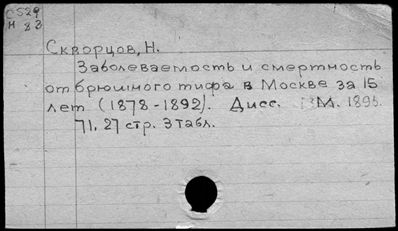 С529
Н 83
Скворцов, Н.
Заболеваемость и смертность
от брюшного тифа в Москве за 15
лет (1878-1892). Дисс. М. 1895.
71, 27 стр. 3 табл.